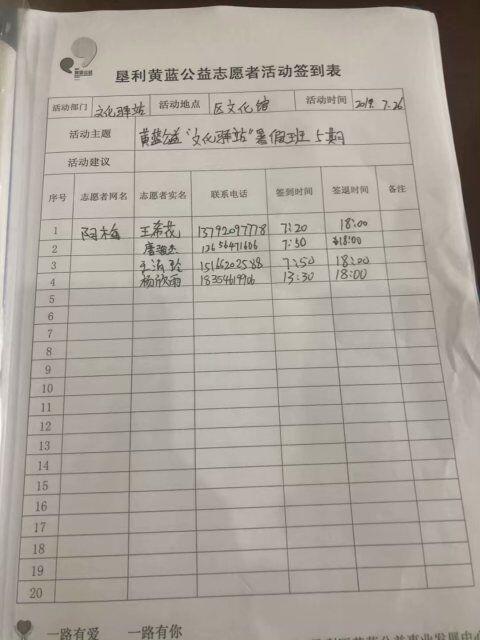 垦利黄蓝公益志愿者活动签到表
活动部门 文化驿站 活动地点 区文化馆 活动时间 2019. 7.26
活动主题 黄蓝公益"文化驿站"暑假班 5期
活动建议
序号 志愿者网名 志愿者实名 联系电话 签到时间 签退时间 备注
1 王希茂 13792097778 7:20 18:00
2 12656471606 7:50 18:00
3 15166202588 7:50 18:00
4 杨欣雨 18354619906 13:30 18:00
5
6
7
8
9
10
11
12
13
14
15
16
17
18
19
20
一路有爱 一路有你